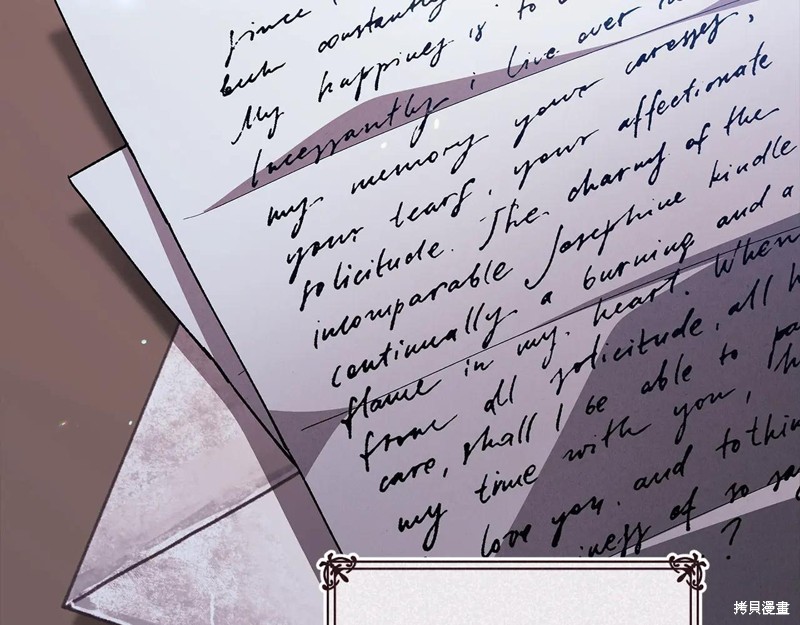 since
been constantly
My happiness is to
Incessantly i live over
my memory your caresses,
your tears, your affectionate
solicitude. The charms of the
incomparable Josephine kindle
continually a burning and a
flame in my heart. When
from all solicitude, all h
care, shall I be able to pa
my time with you, h
love you, and to thin
iness of so say
?
拷貝漫畫